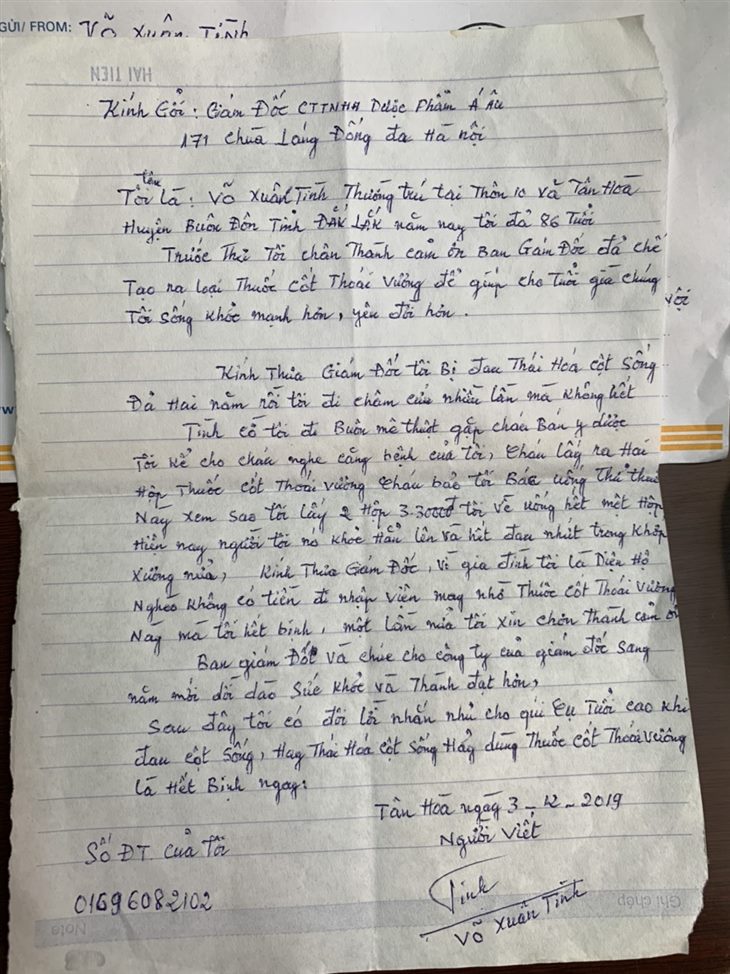 GỬI/ FROM: Võ Xuân Tình
HAI TIEN
Kính Gởi: Giám Đốc CTTNHH Dược Phẩm Á Âu
171 Chùa Láng Đống đa Hà nội
tên
Tôi là: Võ Xuân Tình Thường trú tại Thôn 10 xã Tân Hoà
Huyện Buôn Đôn Tỉnh ĐĂK LĂK năm nay tôi đã 86 Tuổi
Trước Thư Tôi chân Thành cảm ơn Ban Gám Đốc đã chế
Tạo ra loại Thuốc Cốt Thoái Vương để giúp cho Tuổi già chúng
Tôi Sống khỏe mạnh hơn, yêu đời hơn.
Kính Thưa Giám Đốc tôi Bị đau Thái Hoá cột Sống
Đã Hai năm rồi tôi đi châm cứu nhiều lần mà không hết
Tình cờ tôi đi Buôn mê thuột gặp cháu Bán y dược
Tôi kể cho cháu nghe căng bệnh của tôi, Cháu lấy ra Hai
Hộp Thuốc Cốt Thoái Vương Cháu bảo tôi Bác uống Thử thuố
Này xem sao tôi lấy 2 Hộp 330000đ tôi về uống hết một Hộp
Hiện nay người tôi nó khỏe Hẳn lên và hết đau nhứt trong khớp
Xương nữa, Kính Thưa Gám Đốc, vì gia đình tôi là Diện Hộ
Nghèo không có tiền đi nhập viện may nhờ Thuốc Cốt Thoái Vương
Này mà tôi hết bịnh, một lần nữa tôi xin chơn Thành cảm ơn
Ban giám Đốc và chúc cho công ty của giám đốc sang
năm mới dồi dào Sức khỏe và Thành đạt hơn,
Sau đây tôi có đôi lời nhắn nhủ cho quí Cụ Tuổi cao khi
đau cột Sống, Hay Thái Hoá cột Sống Hãy dùng Thuốc Cốt Thoái Vương
là Hết Bịnh ngay:
Tân Hoà ngày 3-12-2019
Người Viết
Số ĐT. Của Tôi
01696082102
Tình
Võ Xuân Tình
Ghi chép
Note